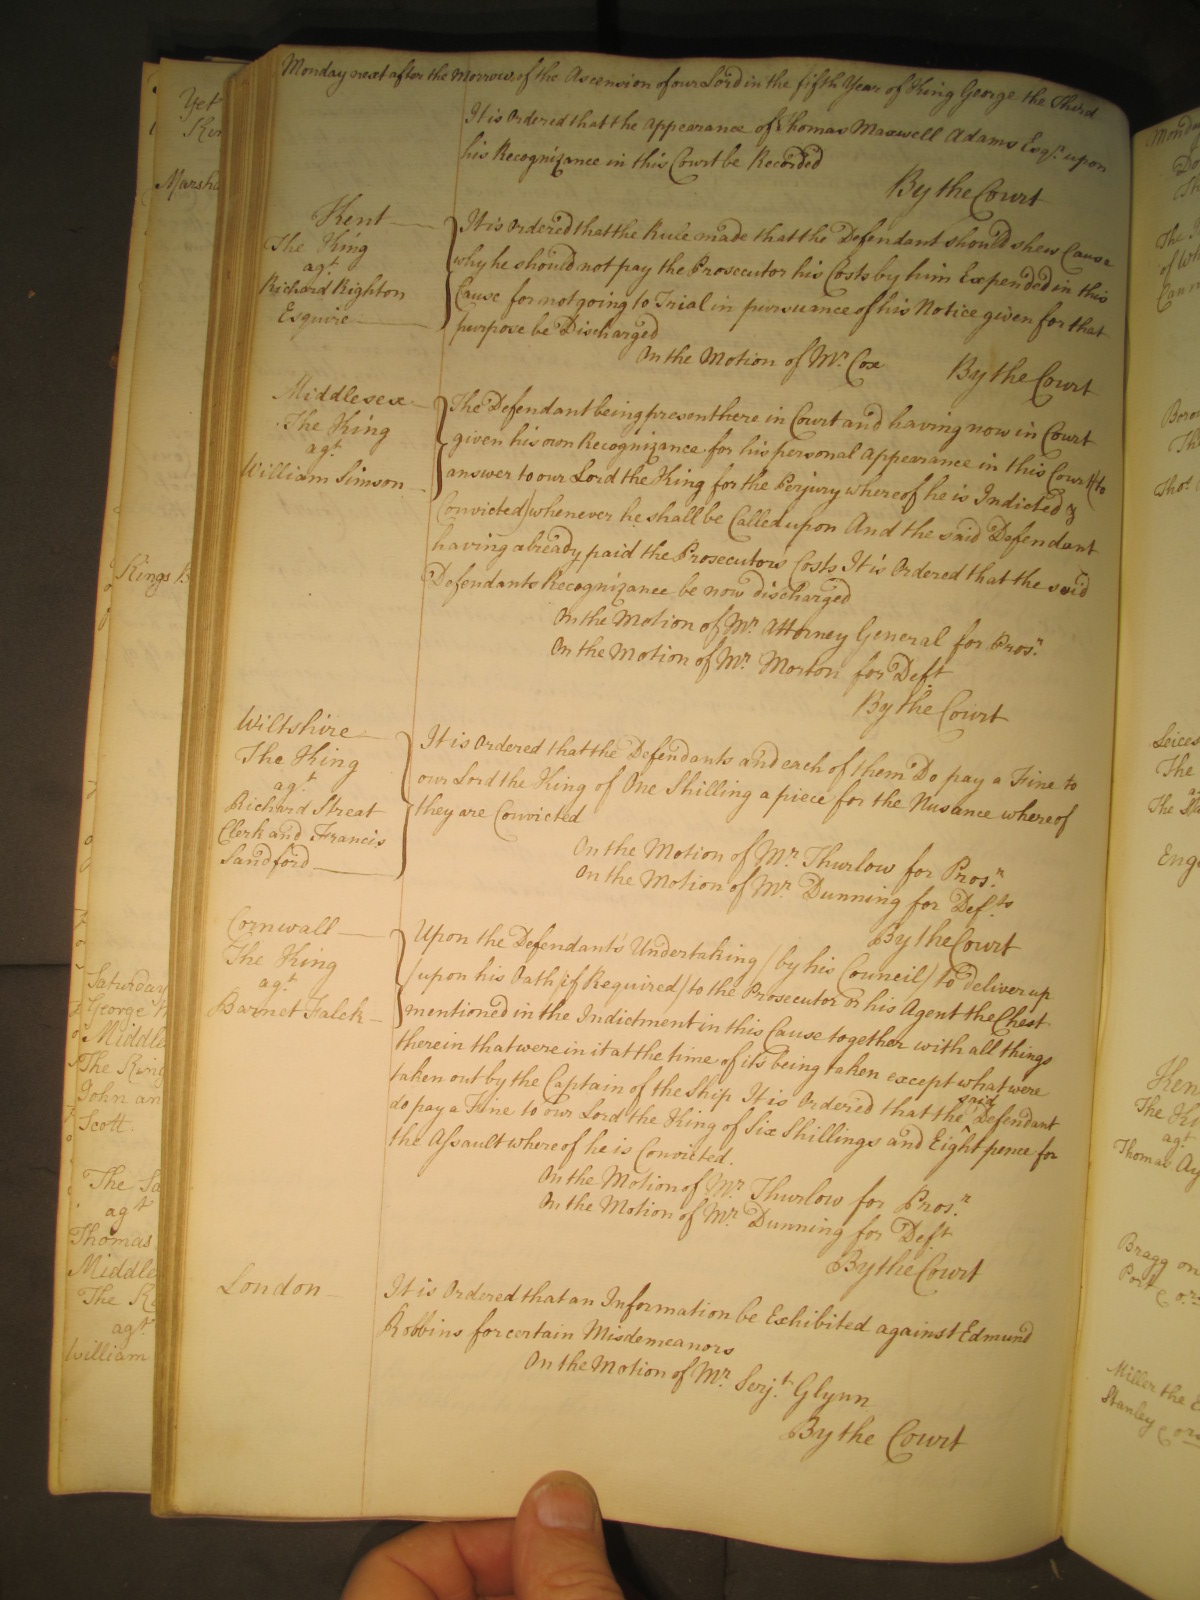 Monday next after the Morrow of the Ascension of our Lord in the fifth Year of King George the Third
It is Ordered that the Appearance of Thomas Maxwell Adams Esqr. upon
his Recognizance in this Court be Recorded
By the Court
Kent
The King
agt
Richard Righton
Esquire
It is Ordered that the Rule made that the Defendant should shew Cause
why he should not pay the Prosecutor his Costs by him Expended in this
Cause for not going to Trial in pursuance of his Notice given for that
purpose be Discharged
On the Motion of Mr. Cox
By the Court
Middlesex
The King
agt.
William Simson
The Defendant being present here in Court and having now in Court
given his own Recognizance for his personal Appearance in this Court (to
answer to our Lord the King for the Perjury whereof he is Indicted &
Convicted) whenever he shall be Called upon And the said Defendant
having already paid the Prosecutors Costs It is Ordered that the said
Defendants Recognizance be now discharged
On the Motion of Mr. Attorney General for Prosr.
On the Motion of Mr. Morton for Deft.
By the Court
Wiltshire
The King
agt.
Richard Streat
Clerk and Francis
Sandford
It is Ordered that the Defendants and each of them Do pay a Fine to
our Lord the King of One Shilling a piece for the Nusance whereof
they are Convicted
On the Motion of Mr. Thurlow for Prosr.
On the Motion of Mr. Dunning for Defts.
By the Court
Cornwall
The King
agt.
Barnet Falck
Upon the Defendants Undertaking (by his Council) to deliver up
(upon his Oath if Required) to the Prosecutor or his Agent the Chest
mentioned in the Indictment in this Cause together with all things
therein that were in it at the time of its being taken except what were
taken out by the Captain of the Ship It is Ordered that the said Defendant
do pay a Fine to our Lord the King of Six Shillings and Eight pence for
the Assault whereof he is Convicted.
On the Motion of Mr. Thurlow for Prosr.
On the Motion of Mr. Dunning for Deft.
By the Court
London
It is Ordered that an Information be Exhibited against Edmund
Robbins for certain Misdemeanors
On the Motion of Mr. Serjt. Glynn
By the Court
Yet
Marsh
Kings B
Saturday
George
Middle
The King
John an
Scott.
agt
Thomas
Middle
agt
William
Monda
Leices
The
The
Ken
The K
agt
Thomas Ay
Bragg on
Port & ors
Miller the E
Stanley & ors